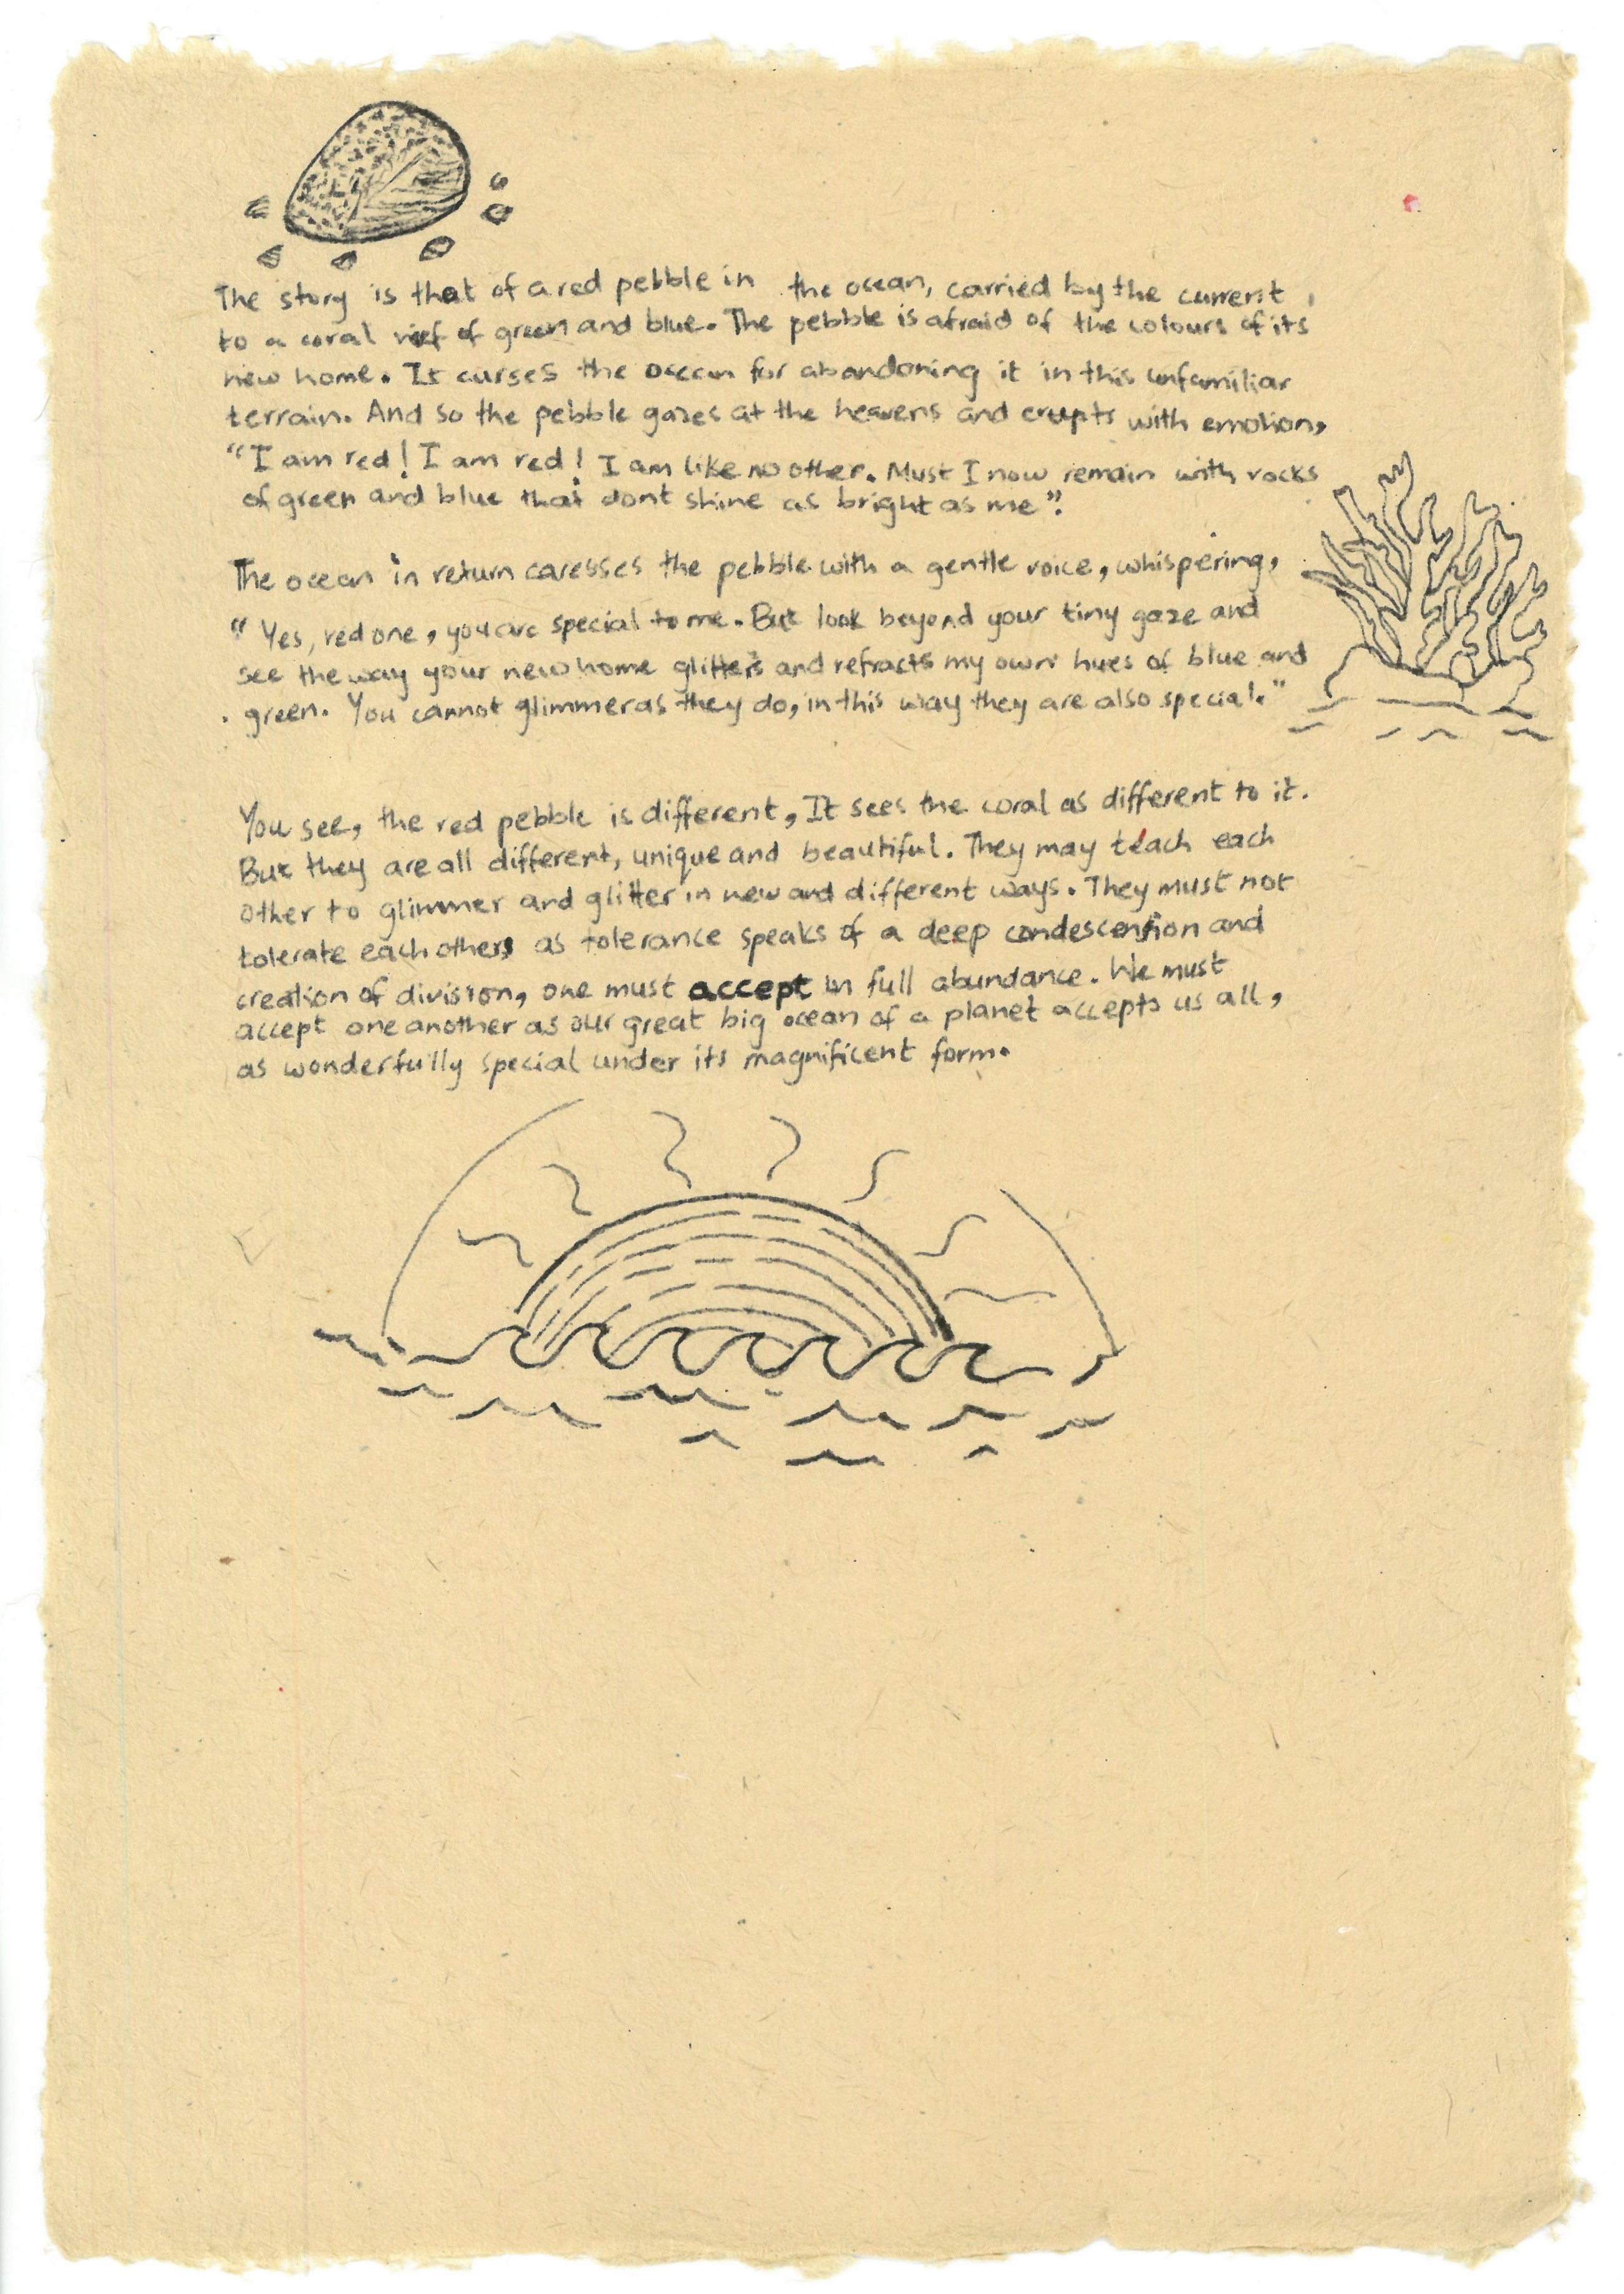 The story is that of a red pebble in the ocean, carried by the current
to a coral reef of green and blue. The pebble is afraid of the colours of its
new home. It curses the ocean for abandoning it in this unfamiliar
terrain. And so the pebble gazes at the heavens and erupts with emotion,
"I am red! I am red! I am like no other. Must I now remain with rocks
of green and blue that dont shine as bright as me".
The ocean in return caresses the pebble with a gentle voice, whispering,
"Yes, red one, you are special to me. But look beyond your tiny gaze and
see the way your new home glitters and refracts my own hues of blue and
green. You cannot glimmer as they do, in this way they are also special."
You see, the red pebble is different, It sees the coral as different to it.
But they are all different, unique and beautiful. They may teach each
other to glimmer and glitter in new and different ways. They must not
tolerate each others as tolerance speaks of a deep condescension and
creation of division, one must accept in full abundance. We must
accept one another as our great big ocean of a planet accepts us all,
as wonderfully special under its magnificent form.